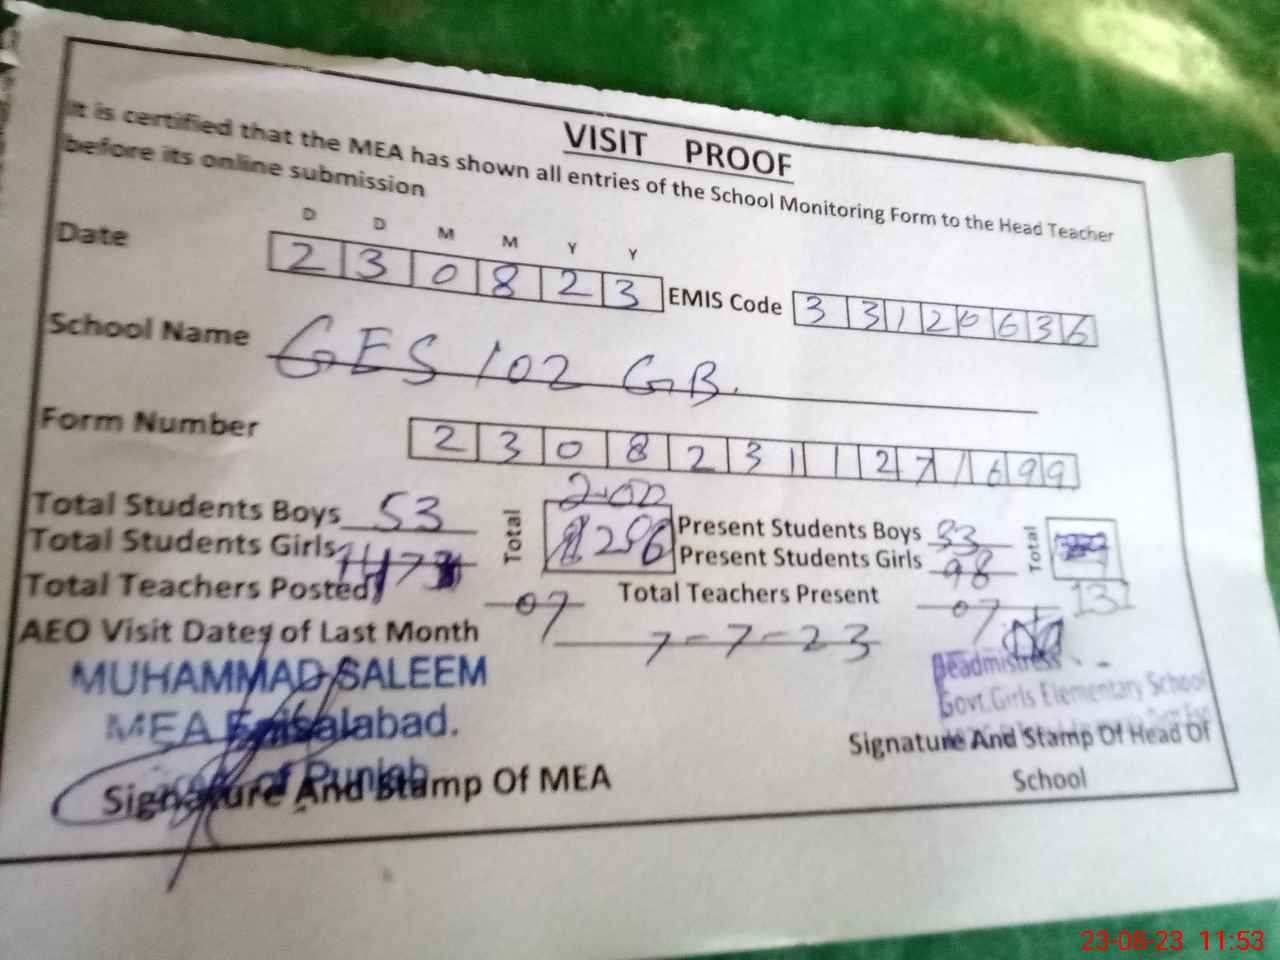 VISIT PROOF
It is certified that the MEA has shown all entries of the School Monitoring Form to the Head Teacher
before its online submission
D D M M Y Y
Date 2 3 0 8 2 3 EMIS Code 3 3 1 2 0 6 3 6
School Name GES 102 GB.
Form Number 2 3 0 8 2 3 1 1 2 7 1 6 9 9
200
Total Students Boys 53 Total Present Students Boys 33 Total
Total Students Girls 147 Present Students Girls 98
131
Total Teachers Posted 07 Total Teachers Present 07
AEO Visit Dates of Last Month 7-7-23
MUHAMMAD SALEEM
MEA Faisalabad.
of Punjab
Signature And Stamp Of MEA
Headmistress
Govt. Girls Elementary School
Signature And Stamp Of Head Of
School
23-08-23 11:53